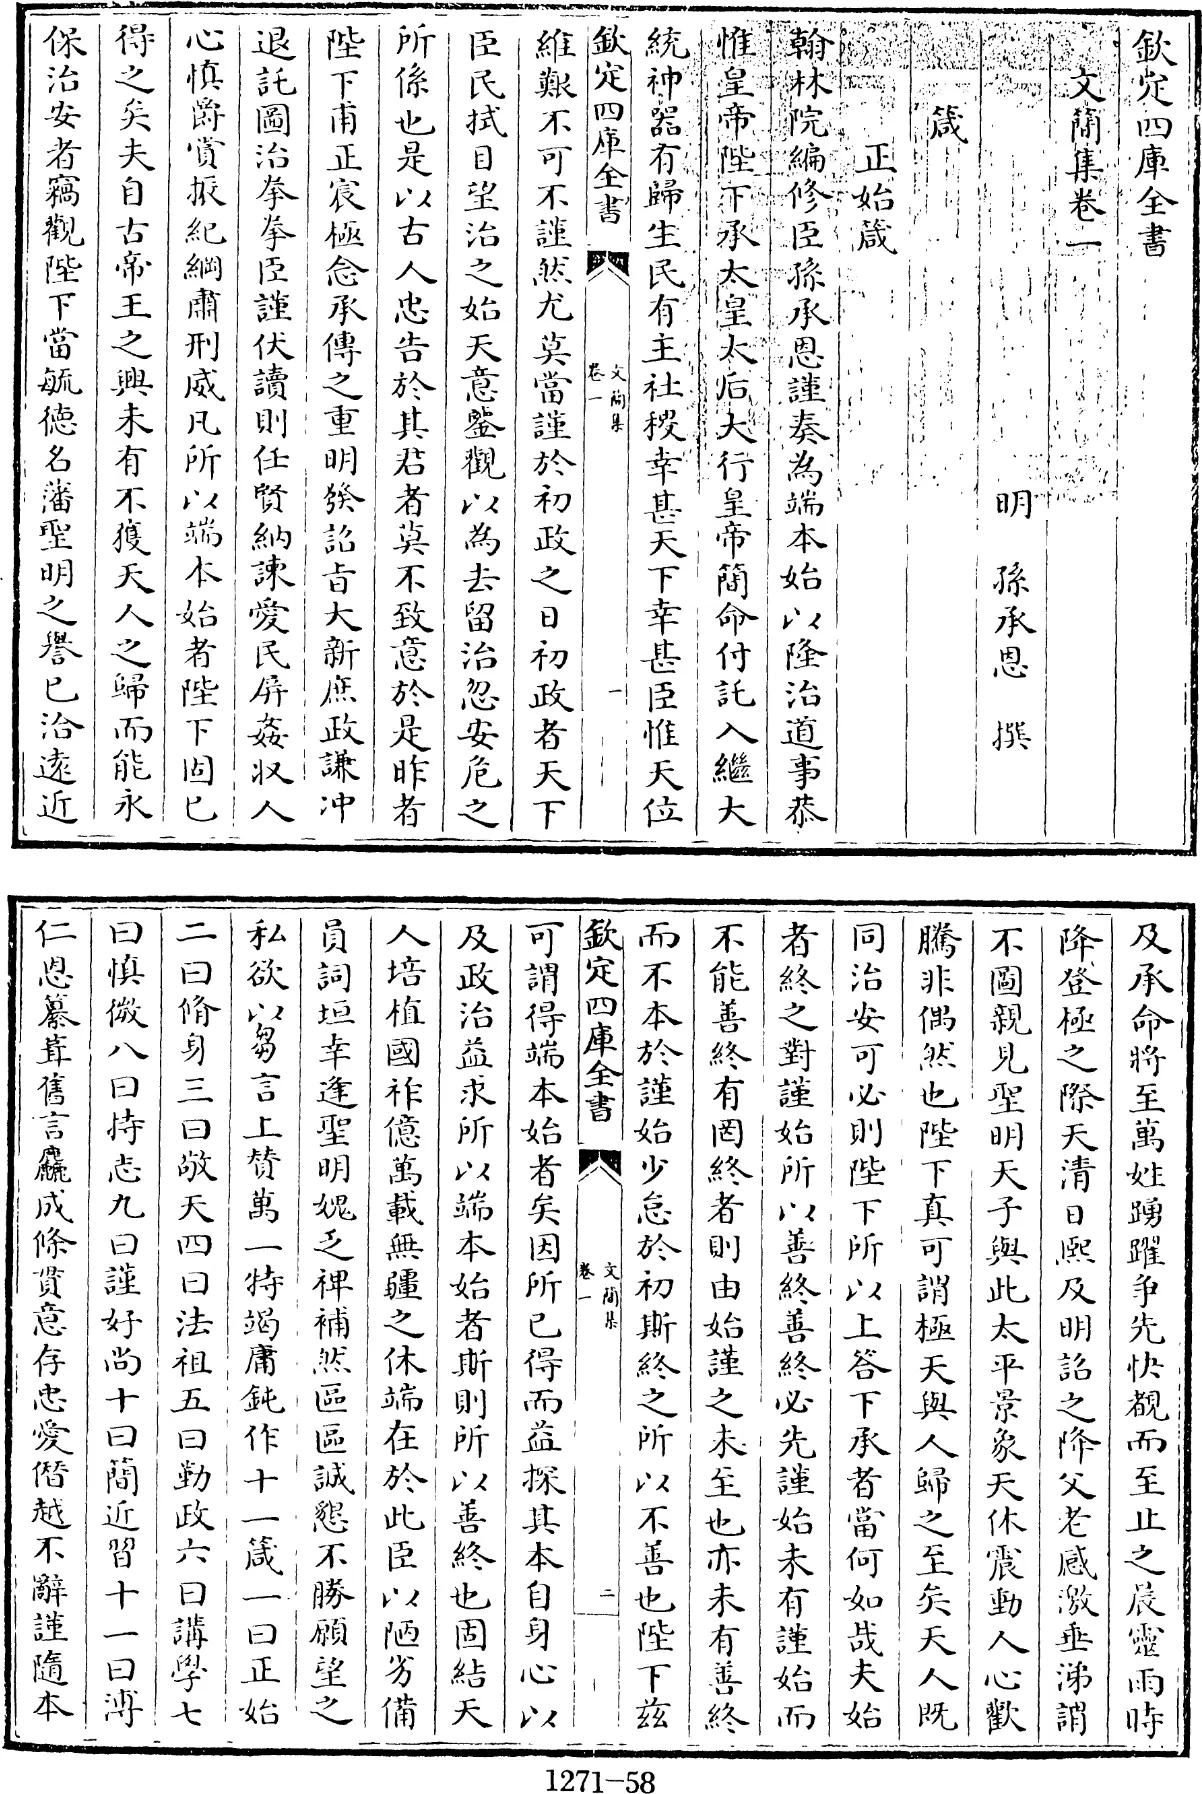 欽定四庫全書
文簡集卷一
明 孫承恩 撰
箴
正始箴
翰林院編修臣孫承恩謹奏為端本始以隆治道事恭
惟皇帝陛下承太皇太后大行皇帝簡命付託入繼大
統神器有歸生民有主社稷幸甚天下幸甚臣惟天位
欽定四庫全書
文簡集
卷一
一
維艱不可不謹然尤莫當謹於初政之日初政者天下
臣民拭目望治之始天意鑒觀以為去留治忽安危之
所係也是以古人忠告於其君者莫不致意於是昨者
陛下甫正宸極念承傳之重明發詔旨大新庶政謙冲
退託圖治拳拳臣謹伏讀則任賢納諫愛民屏姦収人
心慎爵賞振紀綱肅刑威凡所以端本始者陛下固已
得之矣夫自古帝王之興未有不獲天人之歸而能永
保治安者竊觀陛下當毓德名藩聖明之譽已洽遠近
及承命將至萬姓踴躍争先快覩而至止之晨靈雨時
降登極之際天清日熙及明詔之降父老感激垂涕謂
不圖親見聖明天子與此太平景象天休震動人心歡
騰非偶然也陛下真可謂極天與人歸之至矣天人既
同治安可必則陛下所以上答下承者當何如哉夫始
者終之對謹始所以善終善終必先謹始未有謹始而
不能善終有罔終者則由始謹之未至也亦未有善終
而不本於謹始少怠於初斯終之所以不善也陛下兹
欽定四庫全書
文簡集
卷一
二
可謂得端本始者矣因所已得而益探其本自身心以
及政治益求所以端本始者斯則所以善終也固結天
人培植國祚億萬載無疆之休端在於此臣以陋劣備
員詞垣幸逢聖明媿乏裨補然區區誠懇不勝願望之
私欲以芻言上賛萬一特竭庸鈍作十一箴一曰正始
二曰脩身三曰敬天四曰法祖五曰勤政六曰講學七
曰慎微八曰持志九曰謹好尚十曰簡近習十一曰溥
仁恩纂葺舊言麤成條貫意存忠愛僭越不辭謹隨本
1271-58